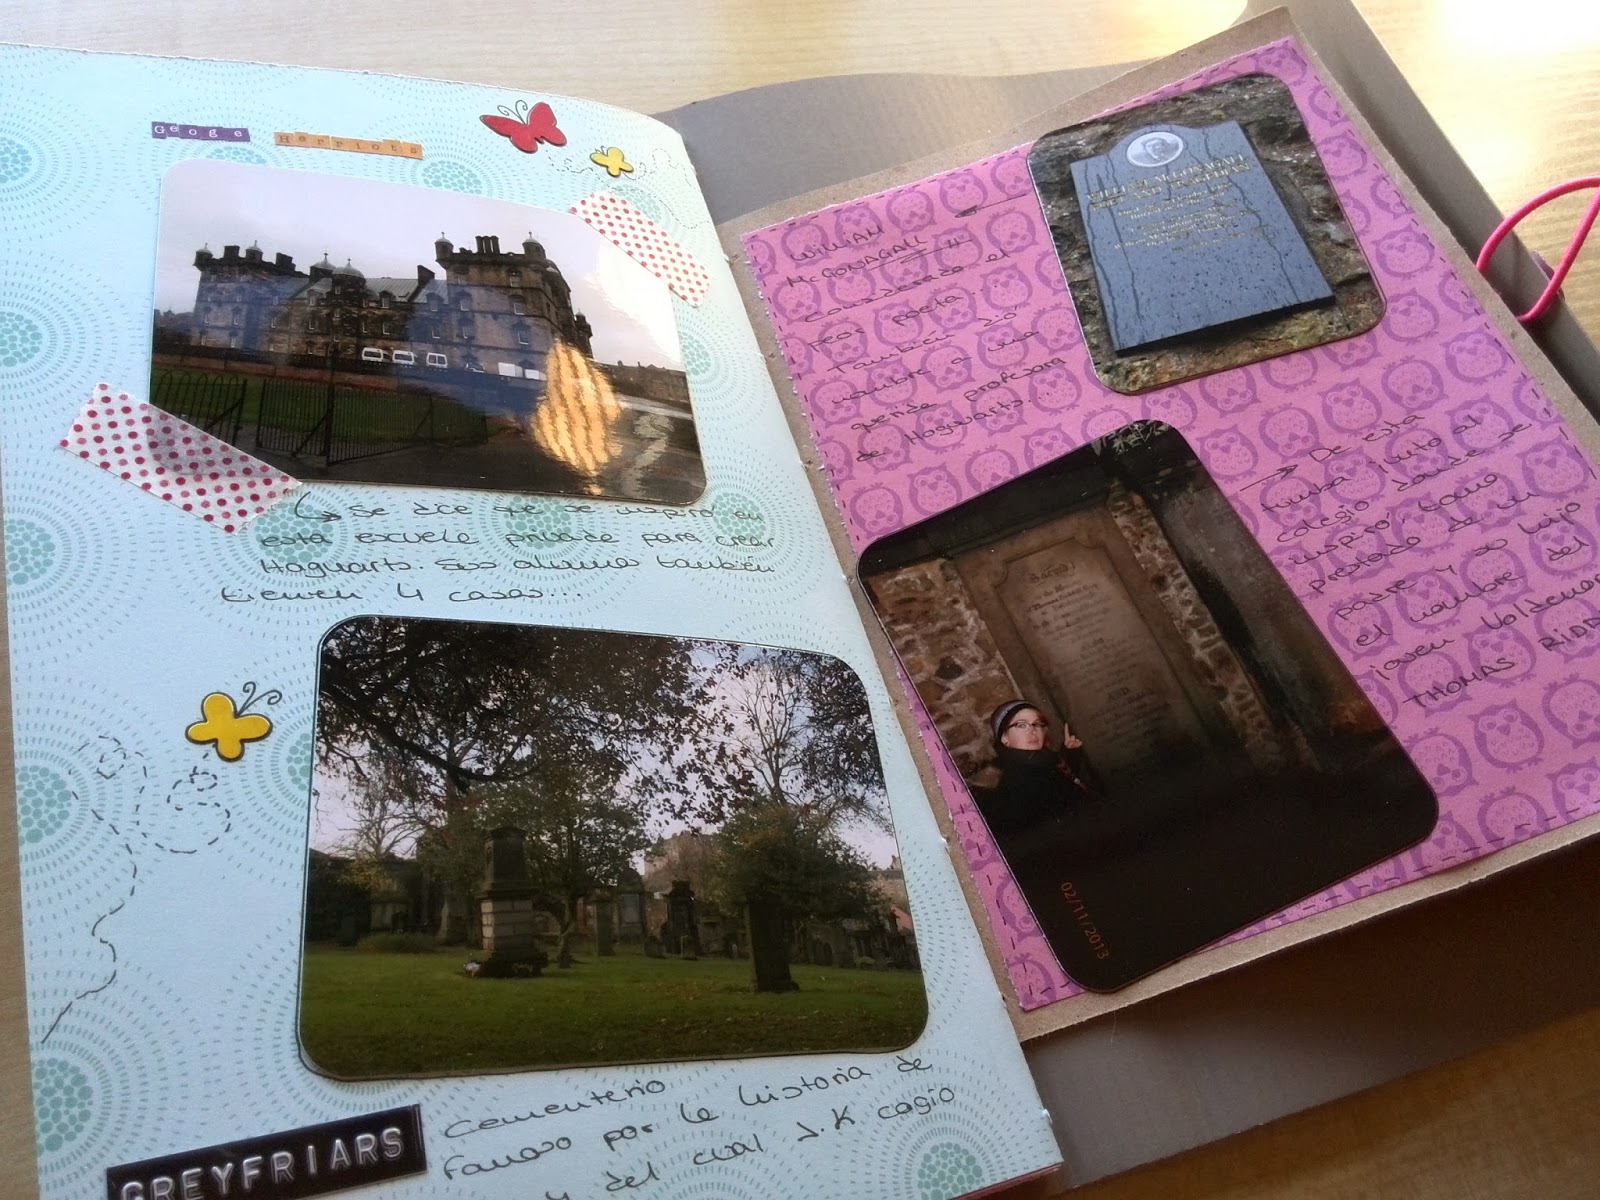 Geoge Herriots
↳ Se dice que se inspiró en
esta escuela privada para crear
Hoguarts. Sus alumnos también
tienen 4 casas...
GREYFRIARS
Cementerio
famoso por la historia de
y del cual J.K cogio
WILLIAM
McGONAGALL
considerado el
peor poeta
También dio
nombre a una
querida profesora
de Hogwarts...
WILLIAM McGONAGALL
POET AND TRAGEDIAN
→ De esta
tumba junto al
colegio donde se
inspiró, tomo
prestado de un
padre y so hijo
el nombre del
joven Voldemor
THOMAS RIDD
Sacred
AND
02/11/2013